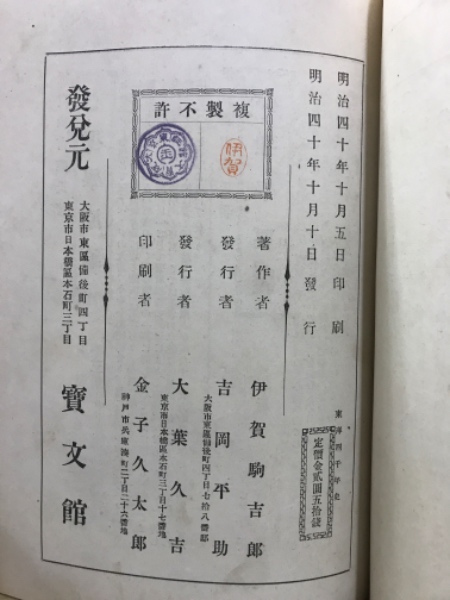 明治四十年十月五日印刷
明治四十年十月十日發行
東洋四千年史
定價金貳圓五拾錢
複製不許
伊賀
著作者 伊賀駒吉郎
發行者 吉岡平助
大阪市東區備後町四丁目七拾八番邸
發行者 大葉久吉
東京市日本橋區本石町三丁目十七番地
印刷者 金子久太郎
神戸市兵庫湊町二丁目二十六番地
發兌元
大阪市東區備後町四丁目
東京市日本橋區本石町三丁目
寶文館